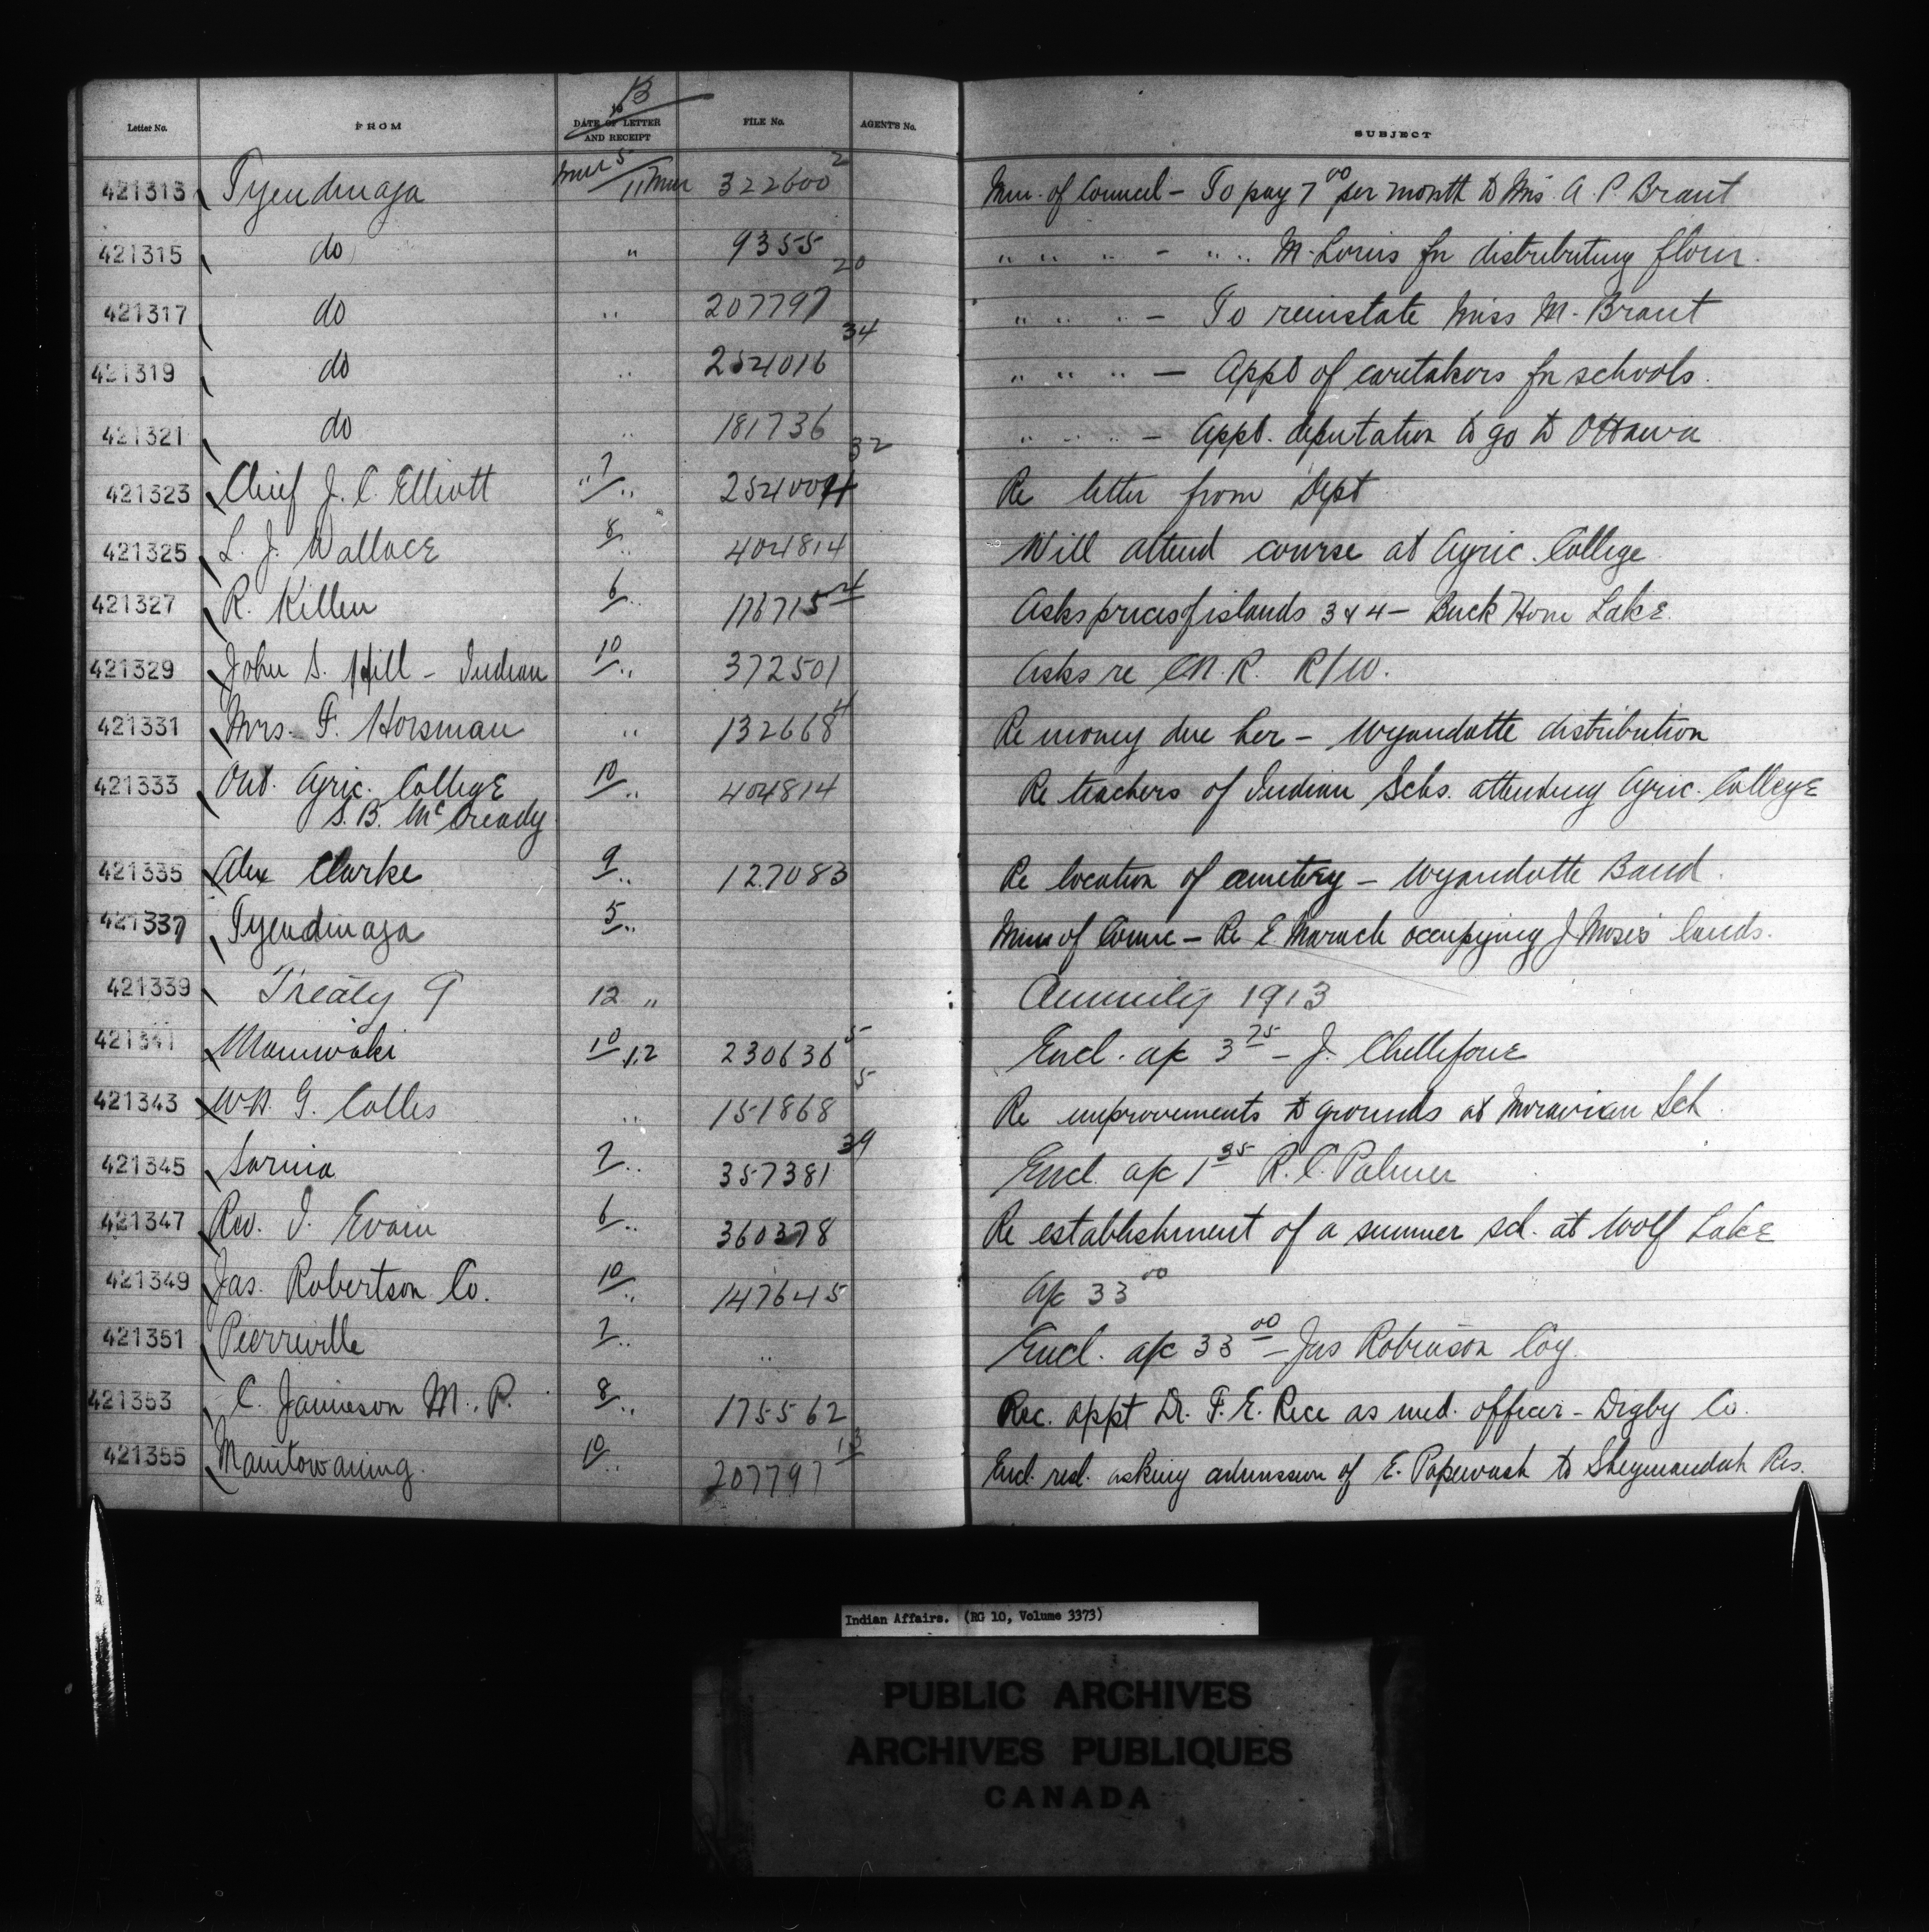 13
Letter No. FROM 19 DATE OF LETTER AND RECEIPT FILE No. AGENT'S No. SUBJECT
421313 Tyendinaga Mar 5/11 Mar 322600 2 Min. of Council - To pay 7 00 per month to Mrs. A. P. Brant
421315 do " 9355 20 " " " - " " M. Loris for distributing flour.
421317 do " 207797 34 " " " - To reinstate Miss M. Brant
421319 do " 254016 " " " - Appt of caretakers for schools.
421321 do " 181736 32 " " " - Appt. deputation to go to Ottawa
421323 Chief J. C. Elliott " 7/ " 254004 Re letter from Dept
421325 L. J. Wallace 8/ " 404814 Will attend course at Agric. College
421327 R. Killen 6/ " 176715 Asks prices of islands 3 & 4 - Buck Horn Lake.
421329 John S. Hill - Indian 10/ " 372501 Asks re C.N.R. R/W.
421331 Mrs. F. Horsman " 132668 4 Re money due her - Wyandotte distribution
421333 Ont. Agric. College 10/ " 404814 Re teachers of Indian Schs. attending Agric. College
S. B. McCready
421335 Alex Clarke 9/ " 127083 Re location of cemetery - Wyandotte Band.
421337 Tyendinaga 5/ " Mins of Counc - Re E. Maracle occupying J Moses lands.
421339 Treaty 9 12 " Annuity 1913
421341 Maniwaki 10/12 230636 5 Encl. a/c 3 75 - J. Chellifour
421343 Wm. G. Colles " 151868 5 Re improvements to grounds at Moravian Sch.
421345 Sarnia 7/ " 357381 39 Encl. a/c 1 35 R. C. Palmer
421347 Rev. I. Evain 6/ " 360378 Re establishment of a summer sch. at Wolf Lake
421349 Jas. Robertson Co. 10/ " 147645 A/c 33 00
421351 Pierreville 7/ " " Encl. a/c 33 00 - Jas Robinson Coy.
421353 C. Jamieson M.P. 8/ " 175562 Rec. appt Dr. F. E. Rice as med. officer - Digby Co.
421355 Manitowaning. 10/ " 207797 13 Encl. resl. asking admission of E. Papewash to Sheguiandah Res.
Indian Affairs. (RG 10, Volume 3373)
PUBLIC ARCHIVES
ARCHIVES PUBLIQUES
CANADA